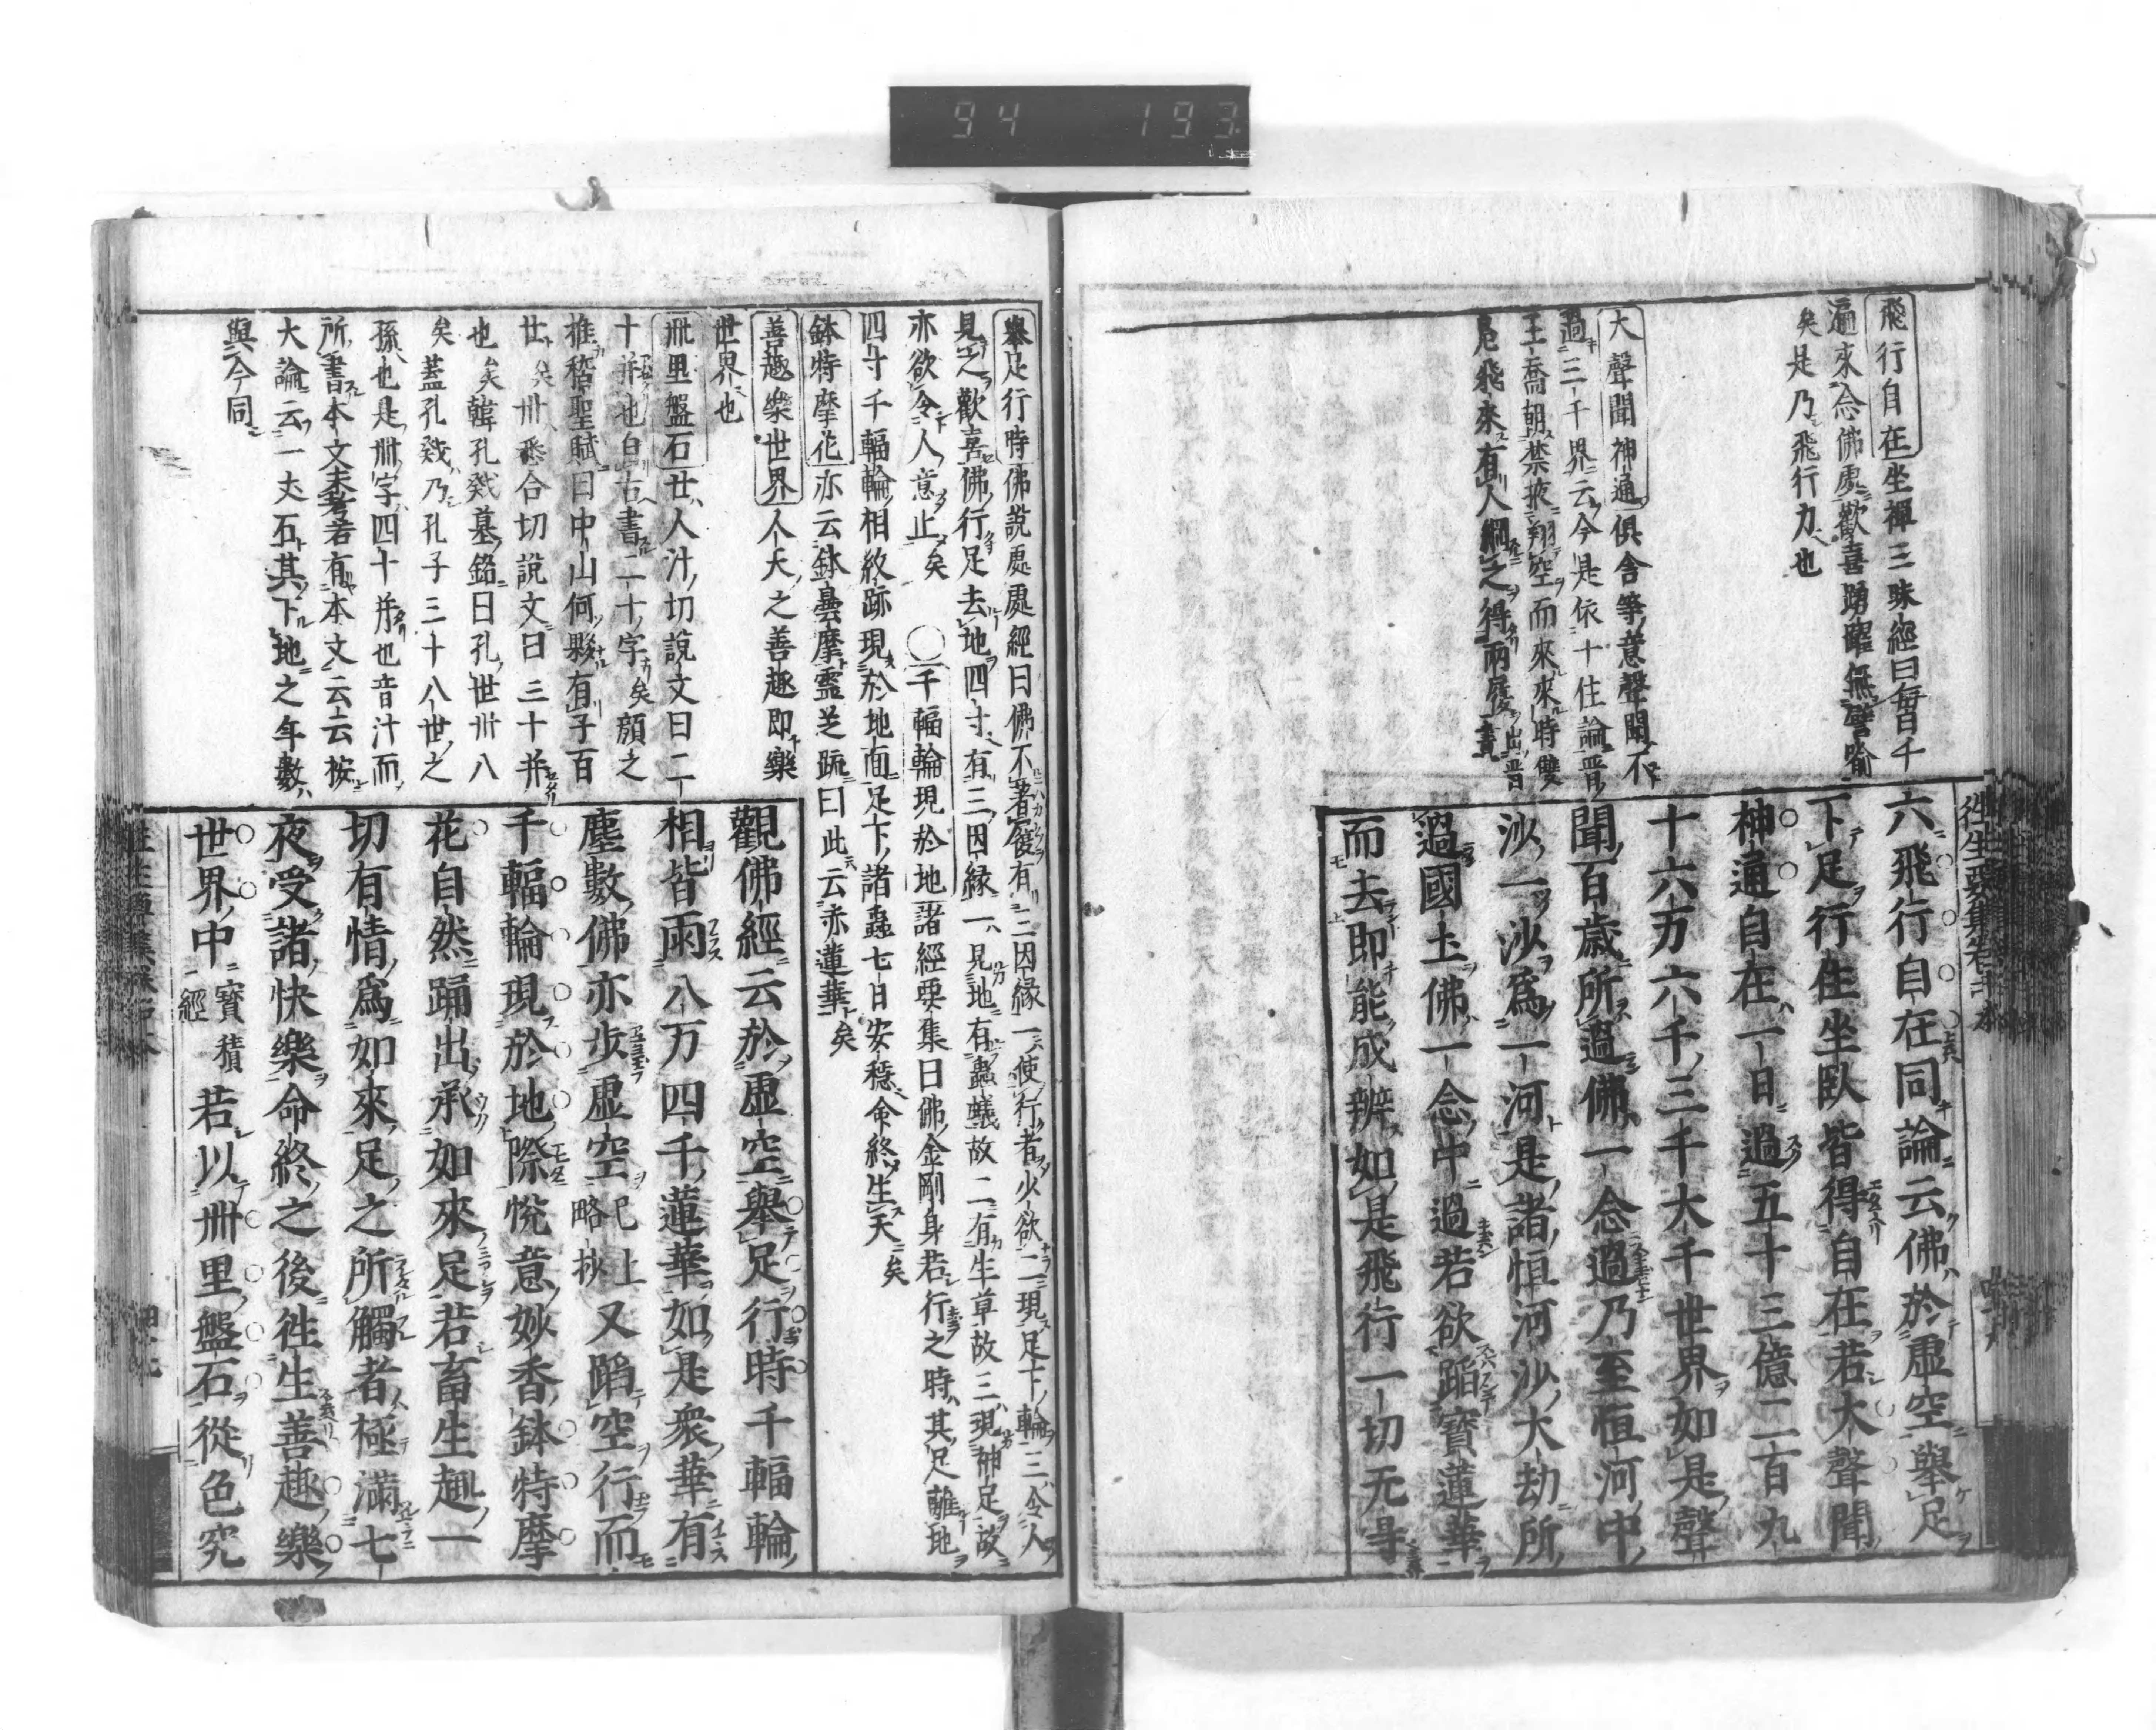 94 193
飛行自在坐禪三昧經曰每日千
遍來念佛處歡喜踴曜無譬喩
矣是乃飛行力也
大聲聞神通俱舍等意聲聞不
過三千界云今是依十住論晋
王喬朝禁掖翔空而來來時雙
鳧飛來有人網之得兩履出晋書
六飛行自在同論云佛於虛空舉足
下足行住坐臥皆得自在若大聲聞
神通自在一日過五十三億二百九
十六万六千三千大千世界如是聲
聞百歲所過佛一念過乃至恒河中
沙一沙爲一河是諸恒河沙大劫所
過國土佛一念中過若欲蹈寶蓮華
而去即能成辨如是飛行一切无㝵
舉足行時佛說處處經曰佛不著履有三因緣一使行者少欲二現足下輪三令人
見之歡喜佛行足去地四寸有三因緣一見地有蟲蟻故二有生草故三現神足故
亦欲令人意止矣 ○千輻輪現於地諸經要集曰佛金剛身若行之時其足離地
四寸千輻輪相紋跡現於地面足下諸蟲七日安穩命終生天矣
鉢特摩花亦云鉢曇摩靈芝疏曰此云赤蓮華矣
善趣樂世界人天之善趣即樂
世界也
卌里盤石廿人汁切說文曰二
十并也白古書二十字矣顔之
推稽聖賦曰中山何夥有子百
廿矣卅悉合切說文曰三十并
也矣韓孔戣墓銘曰孔世卅八
矣蓋孔戣乃孔子三十八世之
孫也是卌字四十并也音汁而
所書本文未考若有本文云云按
大論云一丈石其下地之年數
與今同
觀佛經云於虛空舉足行時千輻輪
相皆雨八万四千蓮華如是衆華有
塵數佛亦步虛空已上略抄又蹈空行而
千輻輪現於地際悅意妙香鉢特摩
花自然踊出承如來足若畜生趣一
切有情爲如來足之所觸者極滿七
夜受諸快樂命終之後往生善趣樂
世界中寶積經若以卌里盤石從色究